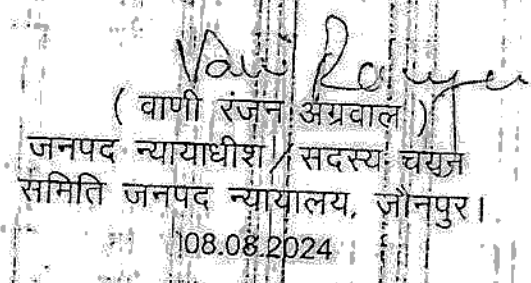 ( वाणी रंजन अग्रवाल )
जनपद न्यायाधीश / सदस्य चयन
समिति जनपद न्यायालय, जौनपुर।
08.08.2024